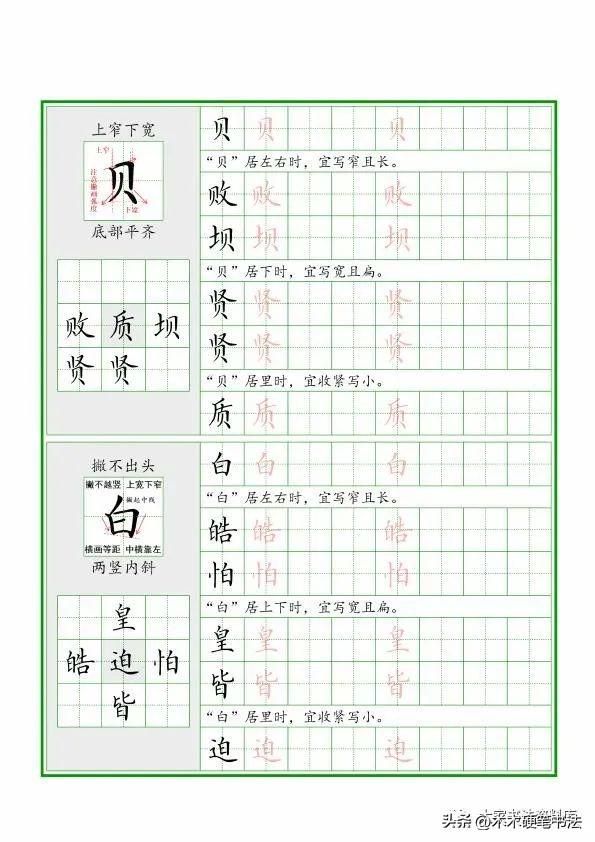 上窄下宽
上窄
注意撇画弧度
贝
下宽
底部平齐
败 质 坝
贤 贤
贝 贝 贝
“贝”居左右时，宜写窄且长。
败 败 败
坝 坝 坝
“贝”居下时，宜写宽且扁。
贤 贤 贤
贤 贤 贤
“贝”居里时，宜收紧写小。
质 质 质
撇不出头
撇不越竖 上宽下窄
撇起中线
白
横画等距 中横靠左
两竖内斜
皇
皓 迫 怕
皆
白 白 白
“白”居左右时，宜写窄且长。
皓 皓 皓
怕 怕 怕
“白”居上下时，宜写宽且扁。
皇 皇 皇
皆 皆 皆
“白”居里时，宜收紧写小。
迫 迫 迫
头条 @木木硬笔书法